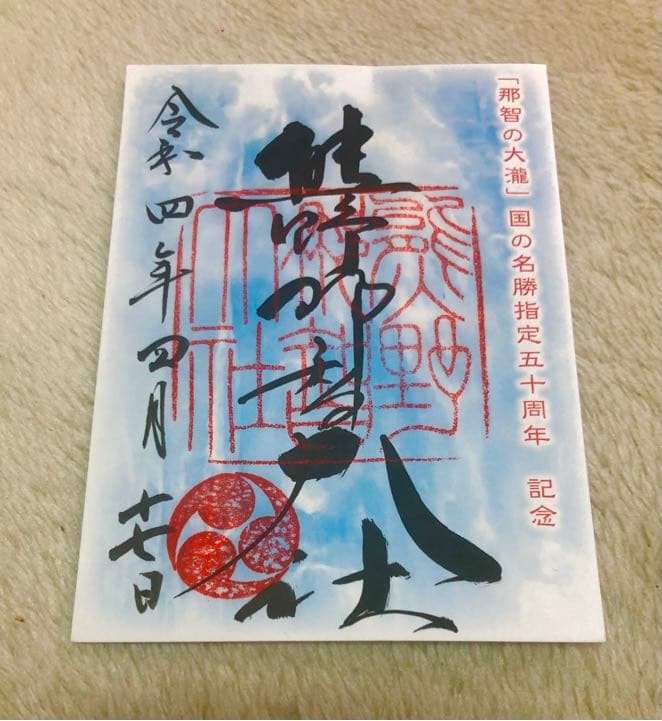 「那智の大瀧」国の名勝指定五十周年 記念
熊野那智大社
熊野
那智
大社
令和四年四月十七日